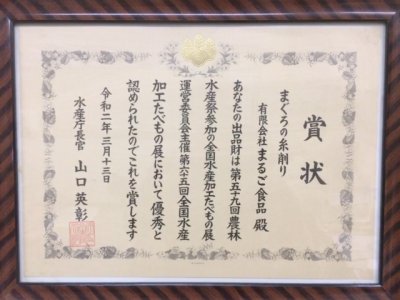 賞状
まぐろの糸削り
有限会社まるご食品 殿
あなたの出品財は第五十九回農林
水産祭参加の全国水産加工たべもの展
運営委員会主催第六五回全国水産
加工たべもの展において優秀と
認められたのでこれを賞します
令和二年三月十三日
水産庁長官 山口英彰